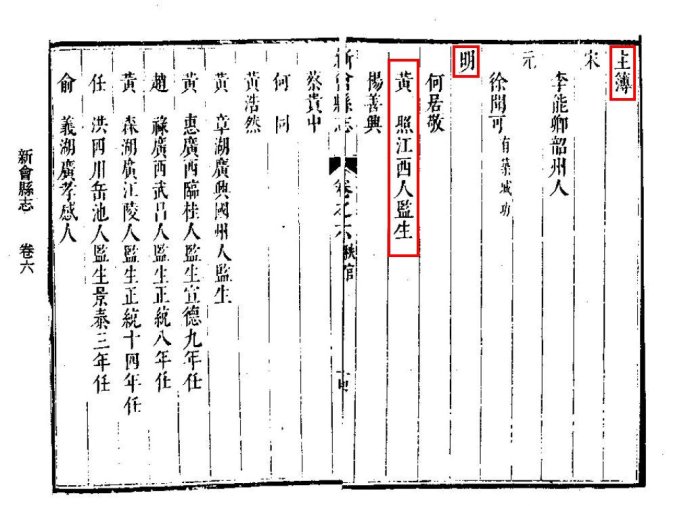 主簿
宋
李能卿韶州人
元
徐閏可有築城功
明
何居敬
黃照江西人監生
楊善興
新會縣志 卷之六 秩官
蔡貴中
何同
黃浩然
黃章湖廣興國州人監生
黃惠廣西臨桂人監生宣德九年任
趙祿廣西武呂人監生正統八年任
黃森湖廣江陵人監生正統十四年任
任洪四川岳池人監生景泰三年任
俞義湖廣孝感人
新會縣志 卷六